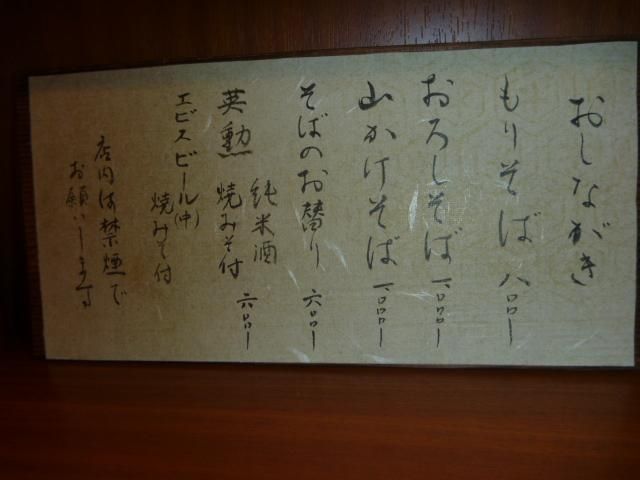 おしながき
もりそば 八〇〇ー
おろしそば 一〇〇〇ー
山かけそば 一〇〇〇ー
そばのお替り 六〇〇ー
純米酒
英勲 焼みそ付 六〇〇ー
エビスビール(中)
焼みそ付
店内は禁煙で
お願いします